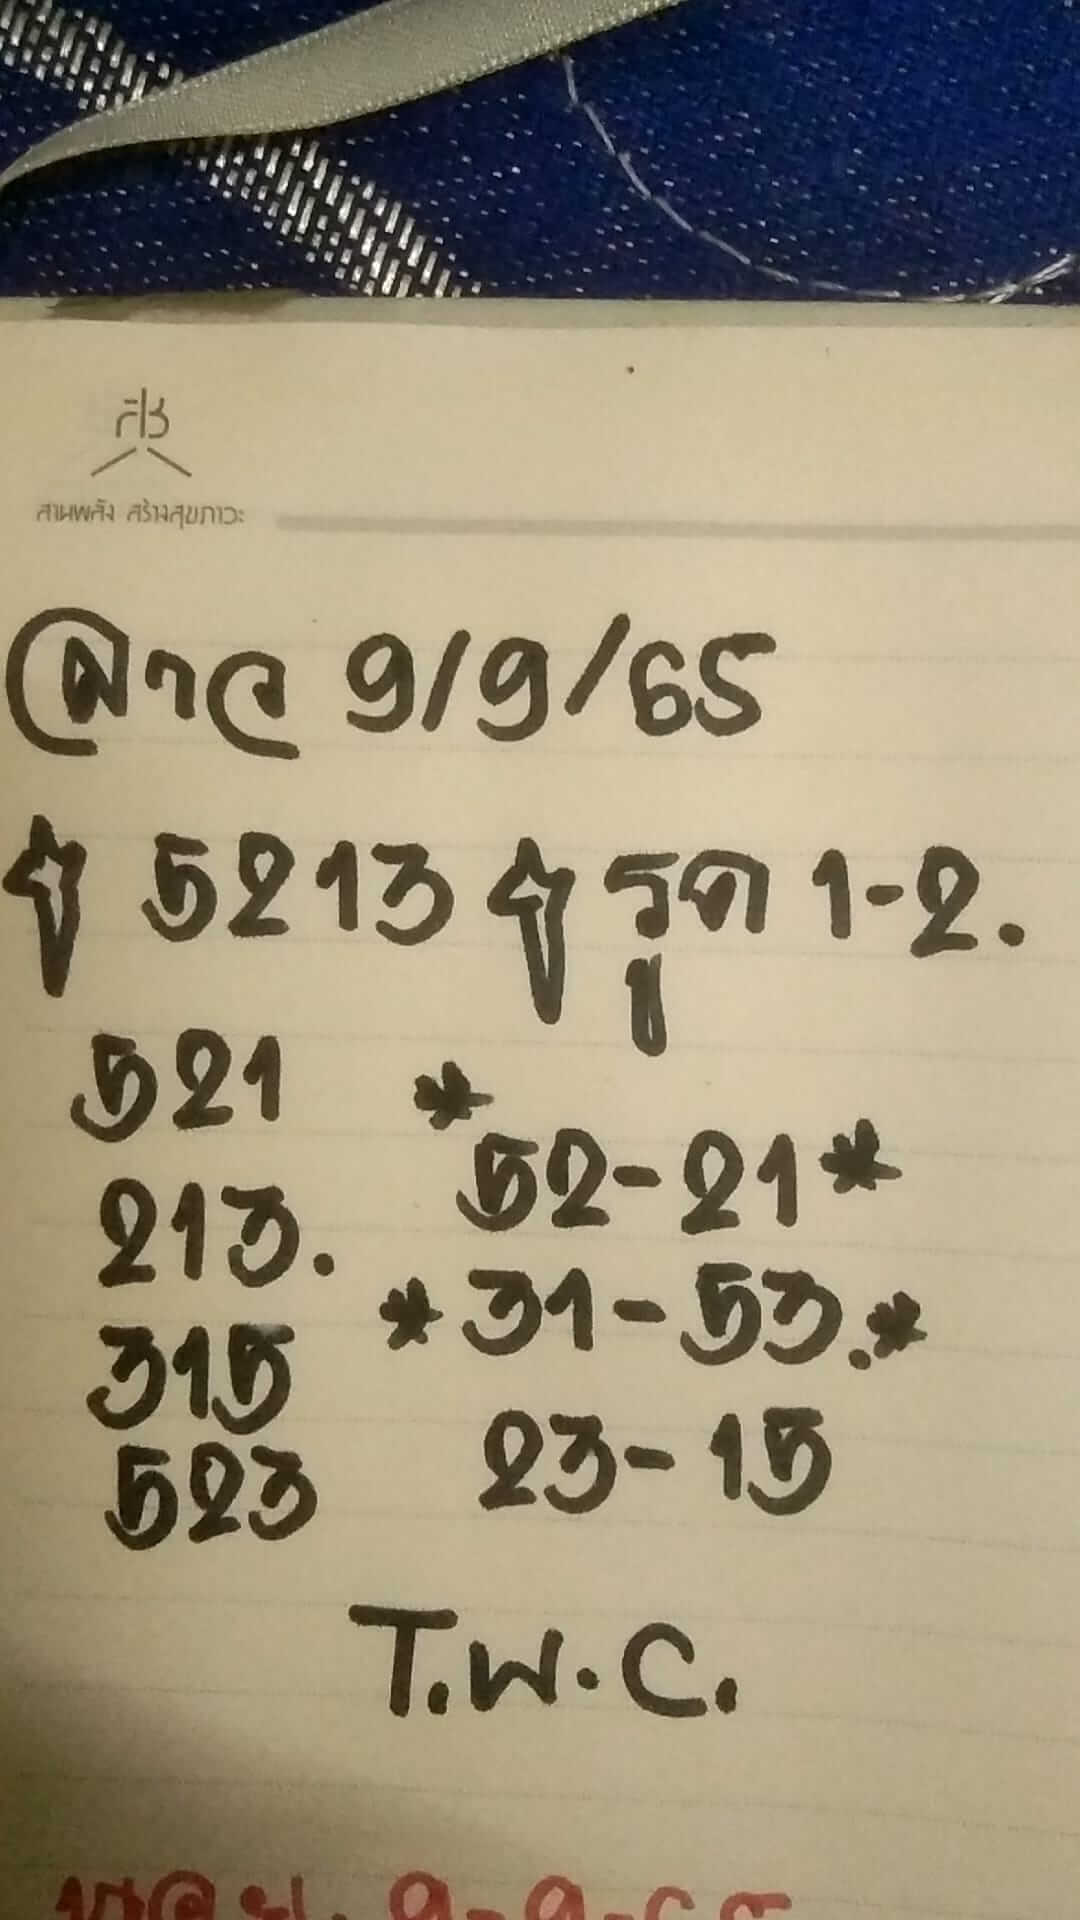 สช
สานพลัง สร้างสุขภาวะ
ลาว 9/9/65
5213 รูด 1-2.
521
*52-21*
213.
*31-53.*
315
23-15
523
T.W.C.
9-9-65